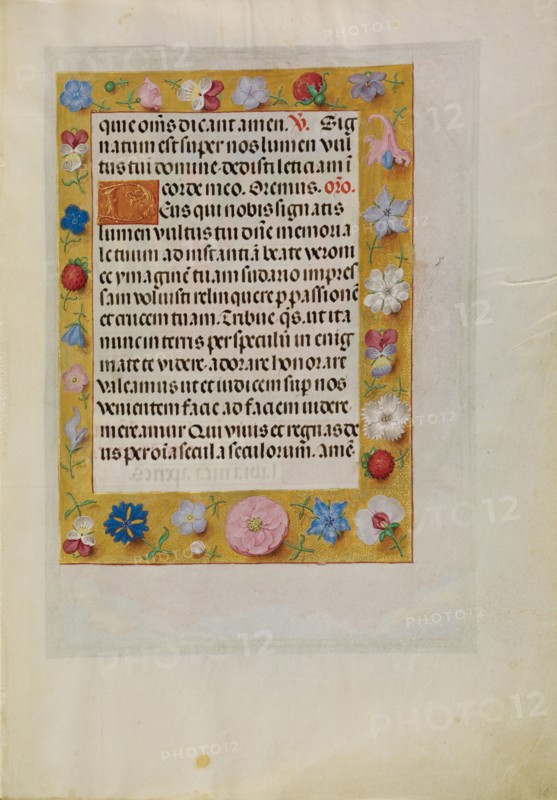 quie om̄s dicant amen. V. Sig
natum est super nos lumen vul
tus tui domine· dedisti leticiam ī
corde meo. Oremus. or̄o.
Deus qui nobis signatis
lumen vultus tui dn̄e memoria
le tuum ad instantiā beate veroni
ce ymaginē tuam sudario impres
sam voluisti relinquere p passionē
et crucem tuam. Tribue q̄s. ut ita
nunc in terris per speculū in enig
mate te videre· adorare honorare
valeamus ut et iudicem sup nos
venientem facie ad faciem videre·
mereamur Qui vivis et regnas de
us per oīa secula seculorum̄. Amē·
PHOTO12